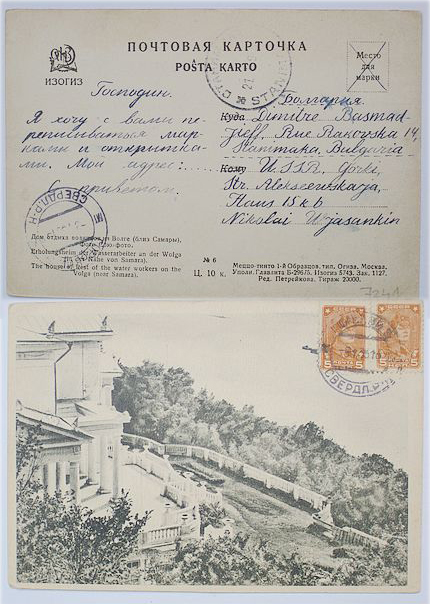 ПОЧТОВАЯ КАРТОЧКА
POŜTA KARTO
ИЗОГИЗ
Место
для
марки
STANI
21
Господин.
Я хочу с вами пе-
реписываться мар-
ками и открытка-
ми. Мой адрес:....
С приветом:
Болгария.
Куда Dimitre Basmad-
jieff, Rue Rakovska 14,
Stanimaka, Bulgaria
Кому U.S.S.R, Gorki,
Str. Alekseewskaja,
Haus 15 kb
Nikolai Wjasankin
СВЕРДЛ.Р-Н
Дом отдыха водников на Волге (близ Самары).
Фото Союз-фото.
Erholungsheim der Wasserarbeiter an der Wolga
(in der Nähe von Samara).
The house of Rest of the water workers on the
Volga (near Samara).
№ 6
Ц. 10 к.
Меццо-тинто 1-й Образцов. тип. Огиза, Москва.
Уполн. Главлита Б-29676. Изогиз 5743. Зак. 1127.
Ред. Петрейкова. Тираж 20000.
5 ПОЧТА 5
5 ПОЧТА 5
СВЕРДЛ.Р-Н